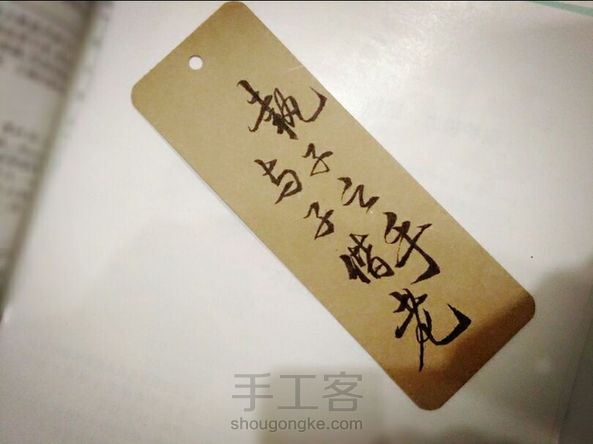 執子之手
与子偕老
手工客
shougongke.com